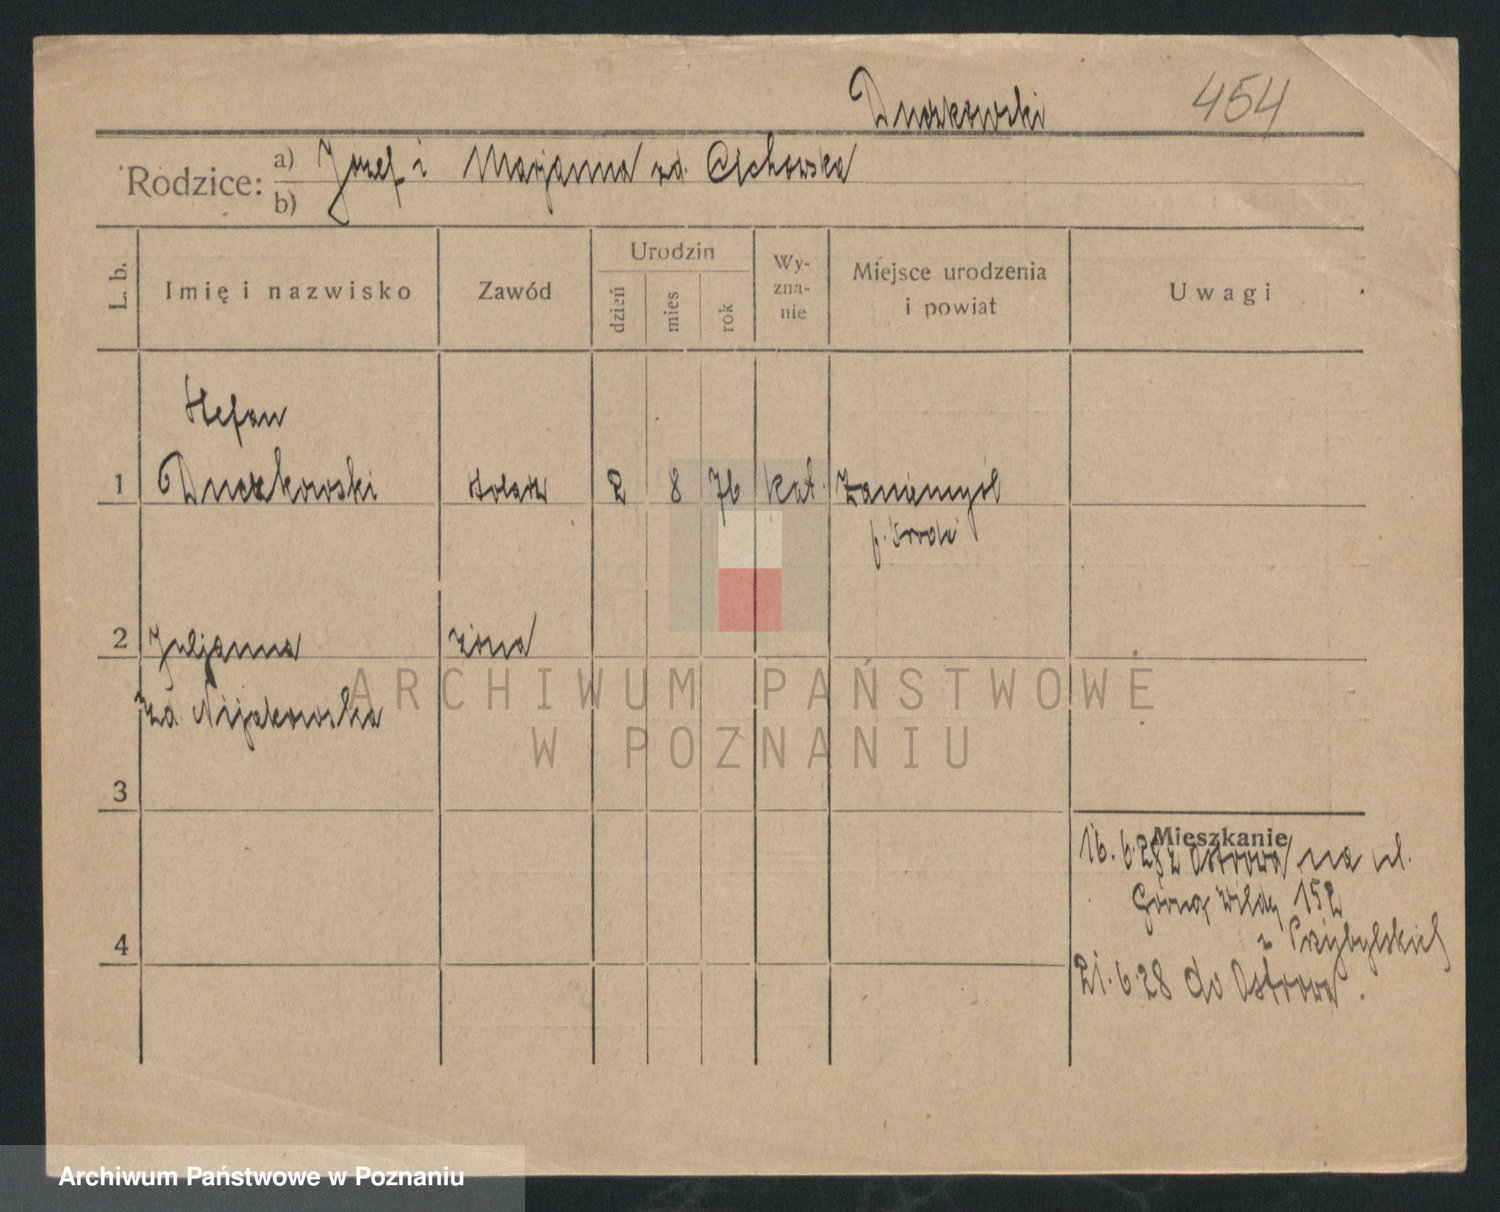 Duczkowski 454
Rodzice: a) Józef i Marjanna zd. Cichowska
b)
L. b. Imię i nazwisko Zawód Urodzin dzień mies rok Wy-zna-nie Miejsce urodzenia i powiat Uwagi
Stefan
1 Duczkowski stolarz 2 8 76 kat. Zaniemyśl
p. Środa
2 Juljanna żona
zd. Nijakowska
3
Mieszkanie
16.6.28 z Ostrowa na ul.
Górną Wildę 152
z Przybylskich
4
21.6.28 do Ostrowa.
ARCHIWUM PAŃSTWOWE
W POZNANIU
Archiwum Państwowe w Poznaniu